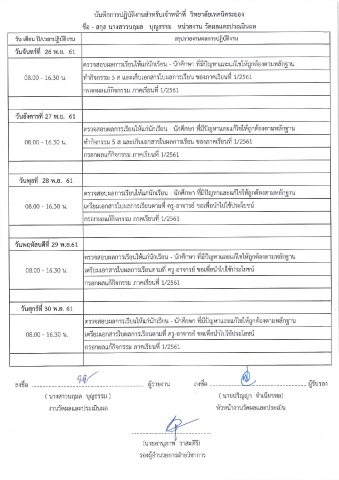 บันทึกการปฏิบัติงานสำหรับเจ้าหน้าที่ วิทยาลัยเทคนิคระยอง
ชื่อ - สกุล นางสาวนฤมล บุญธรรม หน่วยงาน วัดผลและประเมินผล
วัน เดือน ปี/เวลาปฏิบัติงาน สรุปรายงานผลการปฏิบัติงาน
วันจันทร์ที่ 26 พ.ย. 61
08.00 - 16.30 น.
ตรวจสอบผลการเรียนให้แก่นักเรียน - นักศึกษา ที่มีปัญหาและแก้ไขให้ถูกต้องตามหลักฐาน
ทำกิจกรรม 5 ส และเก็บเอกสารใบผลการเรียน ของภาคเรียนที่ 1/2561
กรอกผลแก้กิจกรรม ภาคเรียนที่ 1/2561
วันอังคารที่ 27 พ.ย. 61
08.00 - 16.30 น.
ตรวจสอบผลการเรียนให้แก่นักเรียน - นักศึกษา ที่มีปัญหาและแก้ไขให้ถูกต้องตามหลักฐาน
ทำกิจกรรม 5 ส และเก็บเอกสารใบผลการเรียน ของภาคเรียนที่ 1/2561
กรอกผลแก้กิจกรรม ภาคเรียนที่ 1/2561
วันพุธที่ 28 พ.ย. 61
08.00 - 16.30 น.
ตรวจสอบผลการเรียนให้แก่นักเรียน - นักศึกษา ที่มีปัญหาและแก้ไขให้ถูกต้องตามหลักฐาน
เตรียมเอกสารใบผลการเรียนตามที่ ครู-อาจารย์ ขอเพื่อนำไปใช้ประโยชน์
กรอกผลแก้กิจกรรม ภาคเรียนที่ 1/2561
วันพฤหัสบดีที่ 29 พ.ย.61
08.00 - 16.30 น.
ตรวจสอบผลการเรียนให้แก่นักเรียน - นักศึกษา ที่มีปัญหาและแก้ไขให้ถูกต้องตามหลักฐาน
เตรียมเอกสารใบผลการเรียนตามที่ ครู-อาจารย์ ขอเพื่อนำไปใช้ประโยชน์
กรอกผลแก้กิจกรรม ภาคเรียนที่ 1/2561
วันศุกร์ที่ 30 พ.ย. 61
08.00 - 16.30 น.
ตรวจสอบผลการเรียนให้แก่นักเรียน - นักศึกษา ที่มีปัญหาและแก้ไขให้ถูกต้องตามหลักฐาน
เตรียมเอกสารใบผลการเรียนตามที่ ครู-อาจารย์ ขอเพื่อนำไปใช้ประโยชน์
กรอกผลแก้กิจกรรม ภาคเรียนที่ 1/2561
ลงชื่อ ผู้รายงาน ลงชื่อ ผู้รับรอง
( นางสาวนฤมล บุญธรรม )
งานวัดผลและประเมินผล
หัวหน้างานวัดผลและประเมิน
รองผู้อำนวยการฝ่ายวิชาการ